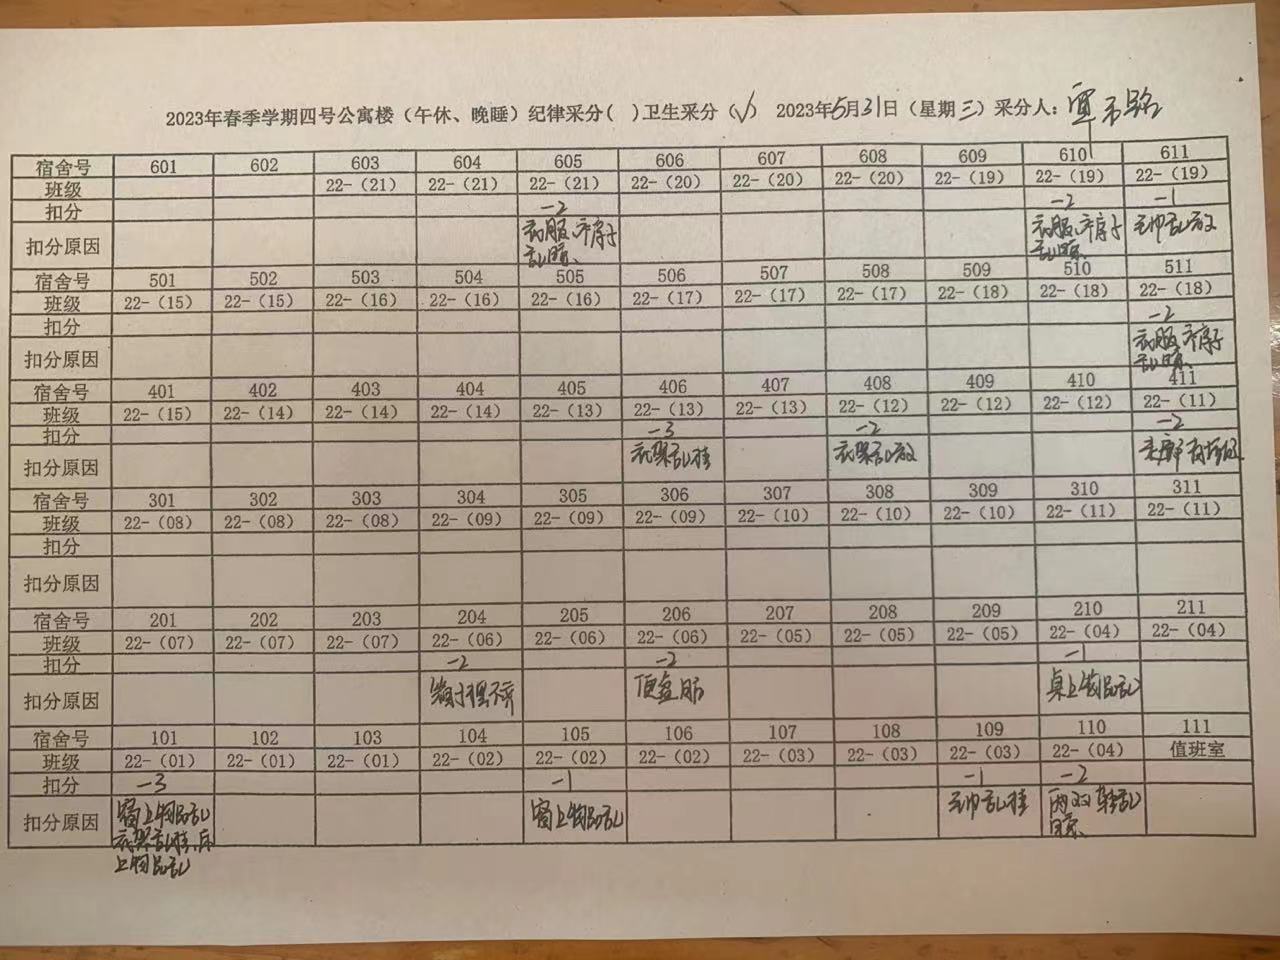 2023年春季学期四号公寓楼（午休、晚睡）纪律采分( )卫生采分（√） 2023年5月31日（星期三）采分人：
宿舍号 601 602 603 604 605 606 607 608 609 610 611
班级 22-（21） 22-（21） 22-（21） 22-（20） 22-（20） 22-（20） 22-（19） 22-（19） 22-（19）
扣分 -2 -2 -1
扣分原因 衣服、 衣服、 毛巾乱放
乱晾 乱晾
宿舍号 501 502 503 504 505 506 507 508 509 510 511
班级 22-（15） 22-（15） 22-（16） 22-（16） 22-（16） 22-（17） 22-（17） 22-（17） 22-（18） 22-（18） 22-（18）
扣分 -2
扣分原因 衣服、
乱晾
宿舍号 401 402 403 404 405 406 407 408 409 410 411
班级 22-（15） 22-（14） 22-（14） 22-（14） 22-（13） 22-（13） 22-（13） 22-（12） 22-（12） 22-（12） 22-（11）
扣分 -3 -2 -2
扣分原因 衣架乱挂 衣架乱放
宿舍号 301 302 303 304 305 306 307 308 309 310 311
班级 22-（08） 22-（08） 22-（08） 22-（09） 22-（09） 22-（09） 22-（10） 22-（10） 22-（10） 22-（11） 22-（11）
扣分
扣分原因
宿舍号 201 202 203 204 205 206 207 208 209 210 211
班级 22-（07） 22-（07） 22-（07） 22-（06） 22-（06） 22-（06） 22-（05） 22-（05） 22-（05） 22-（04） 22-（04）
扣分 -2 -2 -1
扣分原因 桌上物品乱
宿舍号 101 102 103 104 105 106 107 108 109 110 111
班级 22-（01） 22-（01） 22-（01） 22-（02） 22-（02） 22-（02） 22-（03） 22-（03） 22-（03） 22-（04） 值班室
扣分 -3 -1 -1 -2
扣分原因 窗上物品乱 窗上物品乱 毛巾乱挂 两双鞋乱
衣架乱挂、床 晾
上物品乱